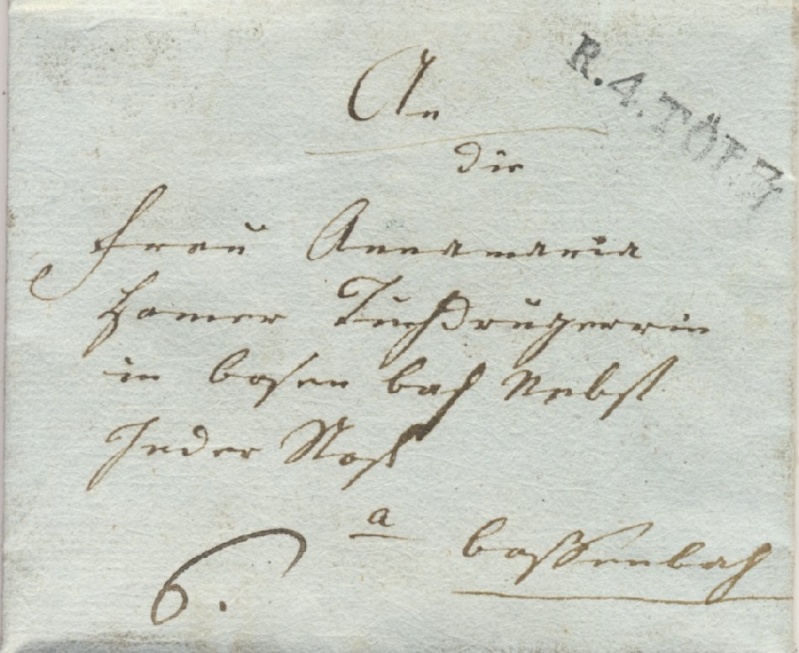 R.4.TÖLZ
An
die
Frau Annamaria
Hamer Tuchdrugerrin
in bosen bach Nebst
a
bossenbach
6.